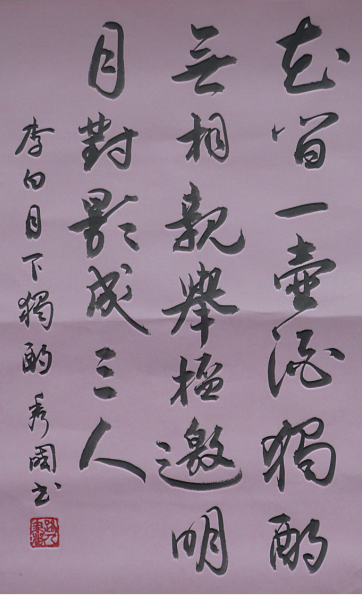 花間一壺酒獨酌
無相親舉杯邀明
月對影成三人
李白月下獨酌 秀國书